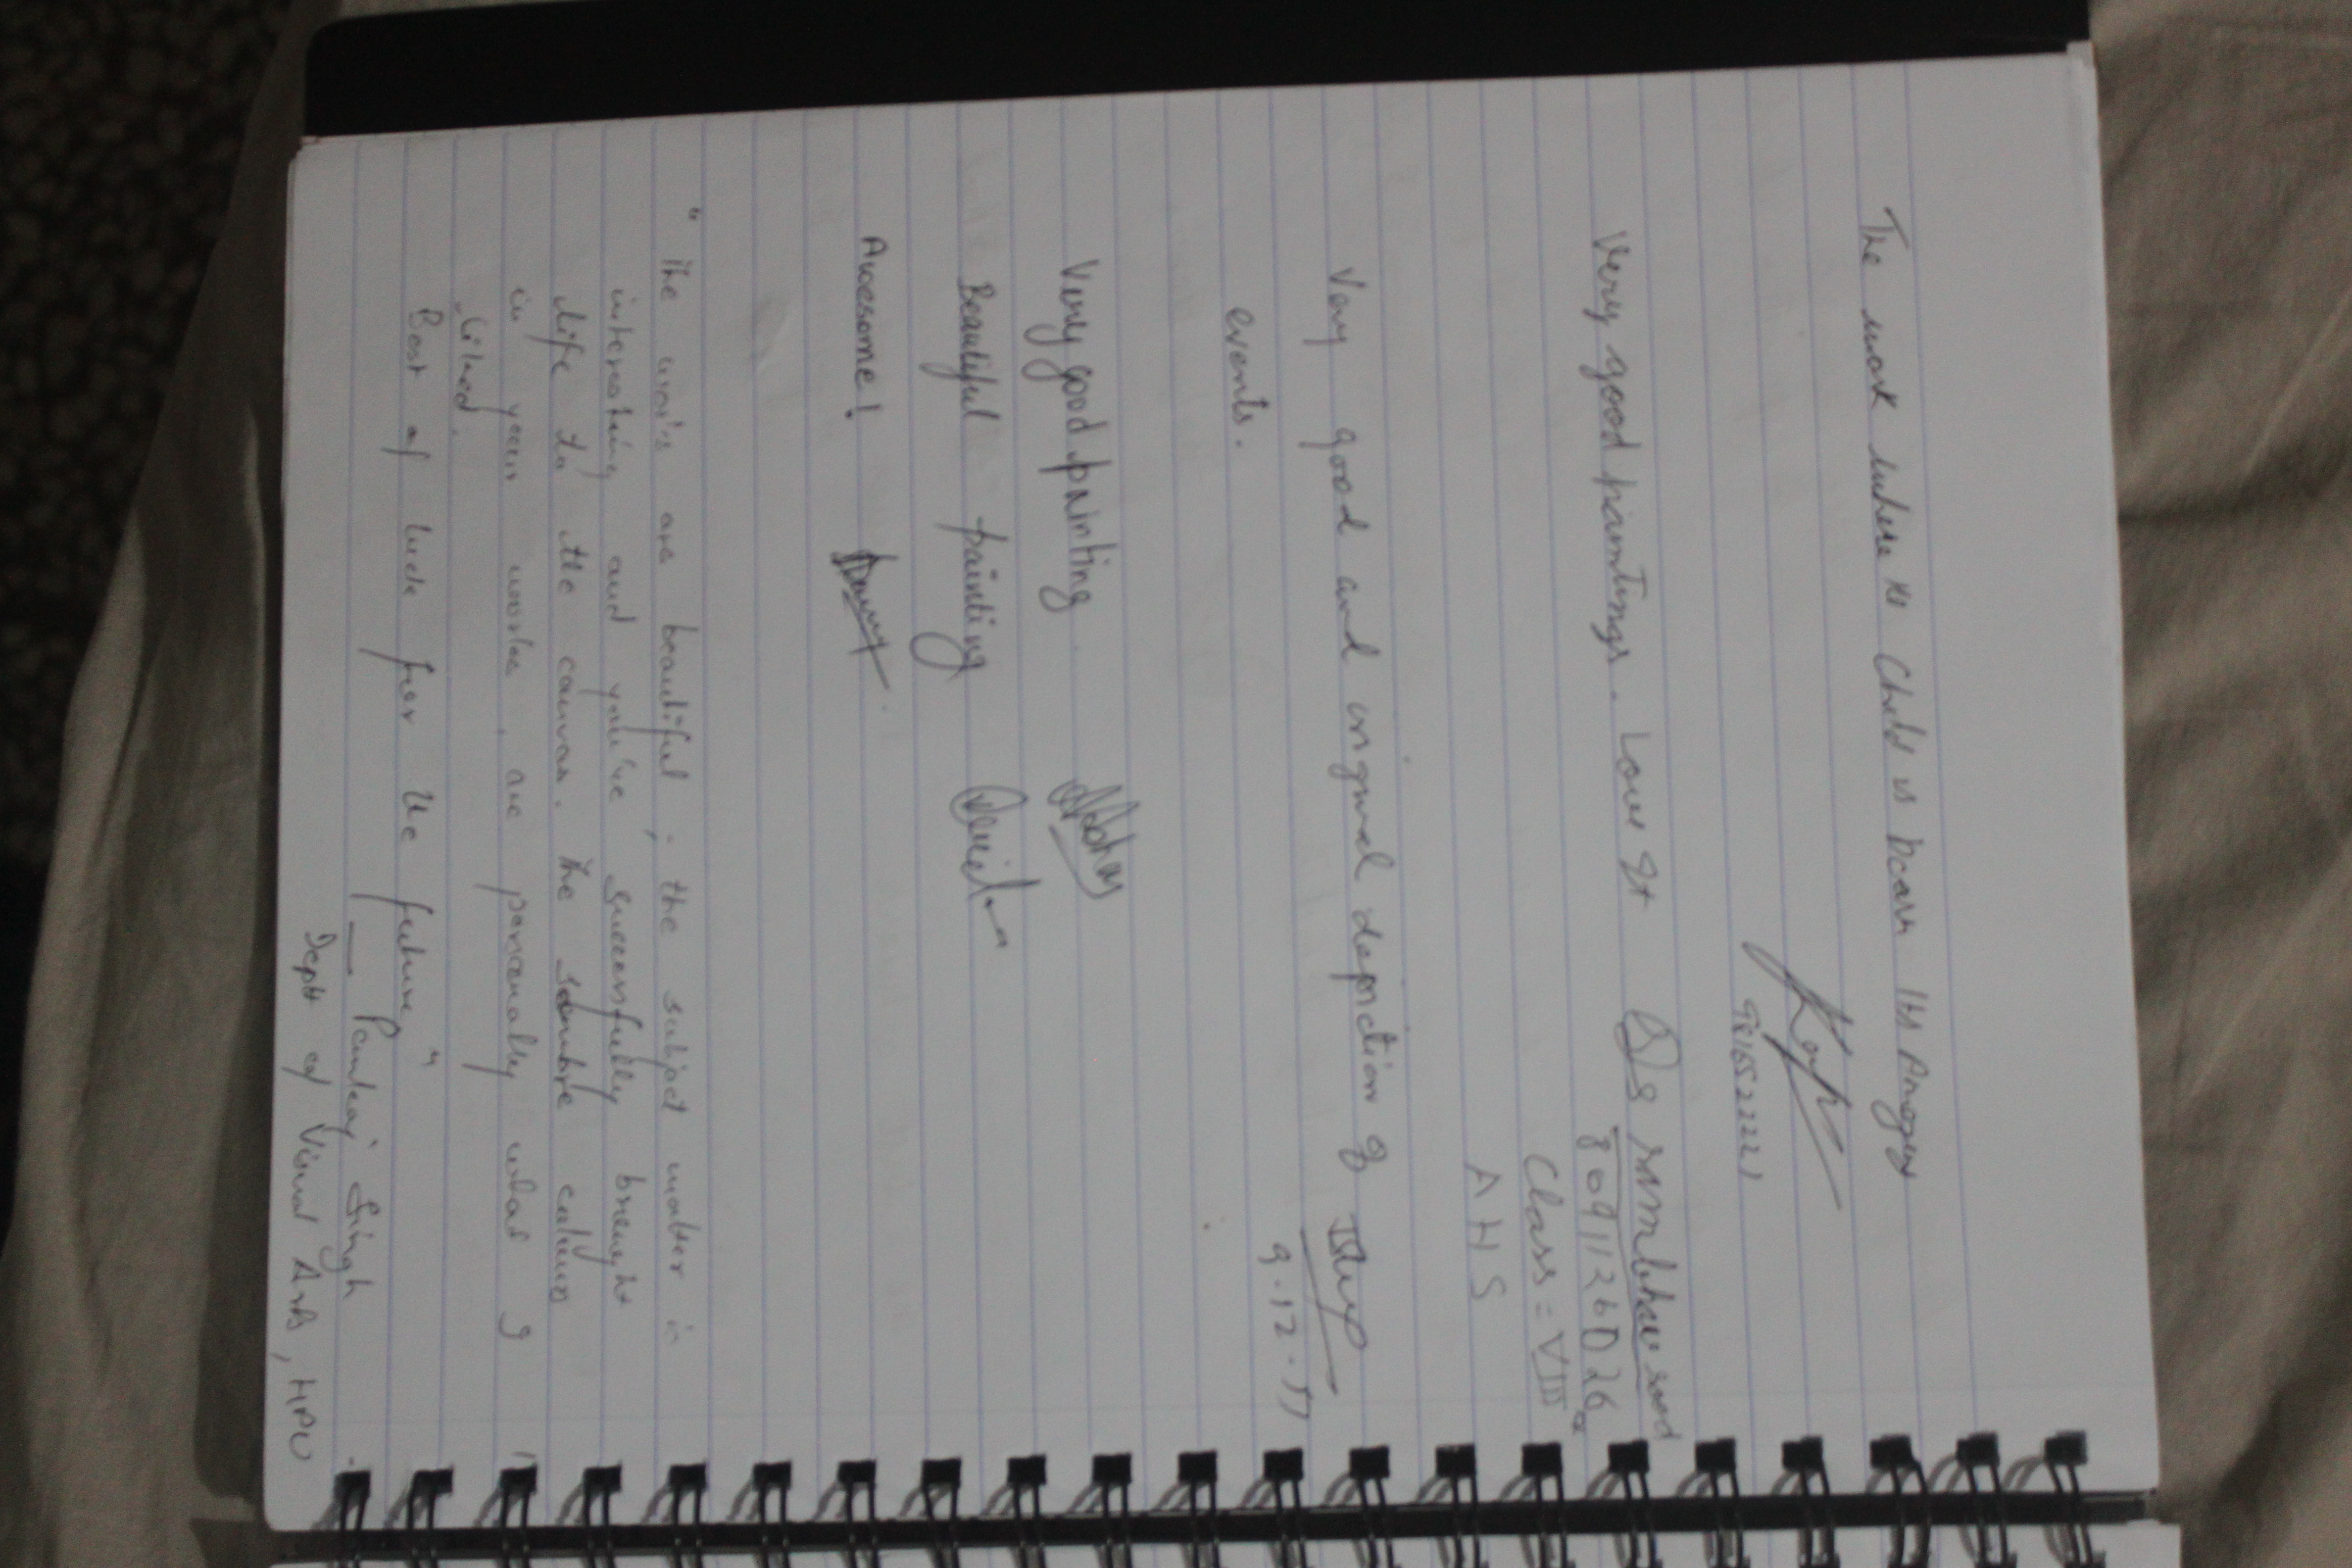 The work where the Child is bearn its Amazing
981652221
Very good paintings. Love It
Class = VIII
A H S
Very good and original depiction of
events.
9.12.17
Very good painting.
Beautiful painting
Awesome!
" The works are beautiful, - the subject matter is
interesting and you've successfully brought
life to the canvas. The sombre colours
in your works, are personally what I
liked.
Best of luck for the future "
_ Pankaj Singh
Deptt of Visual Arts, HPU